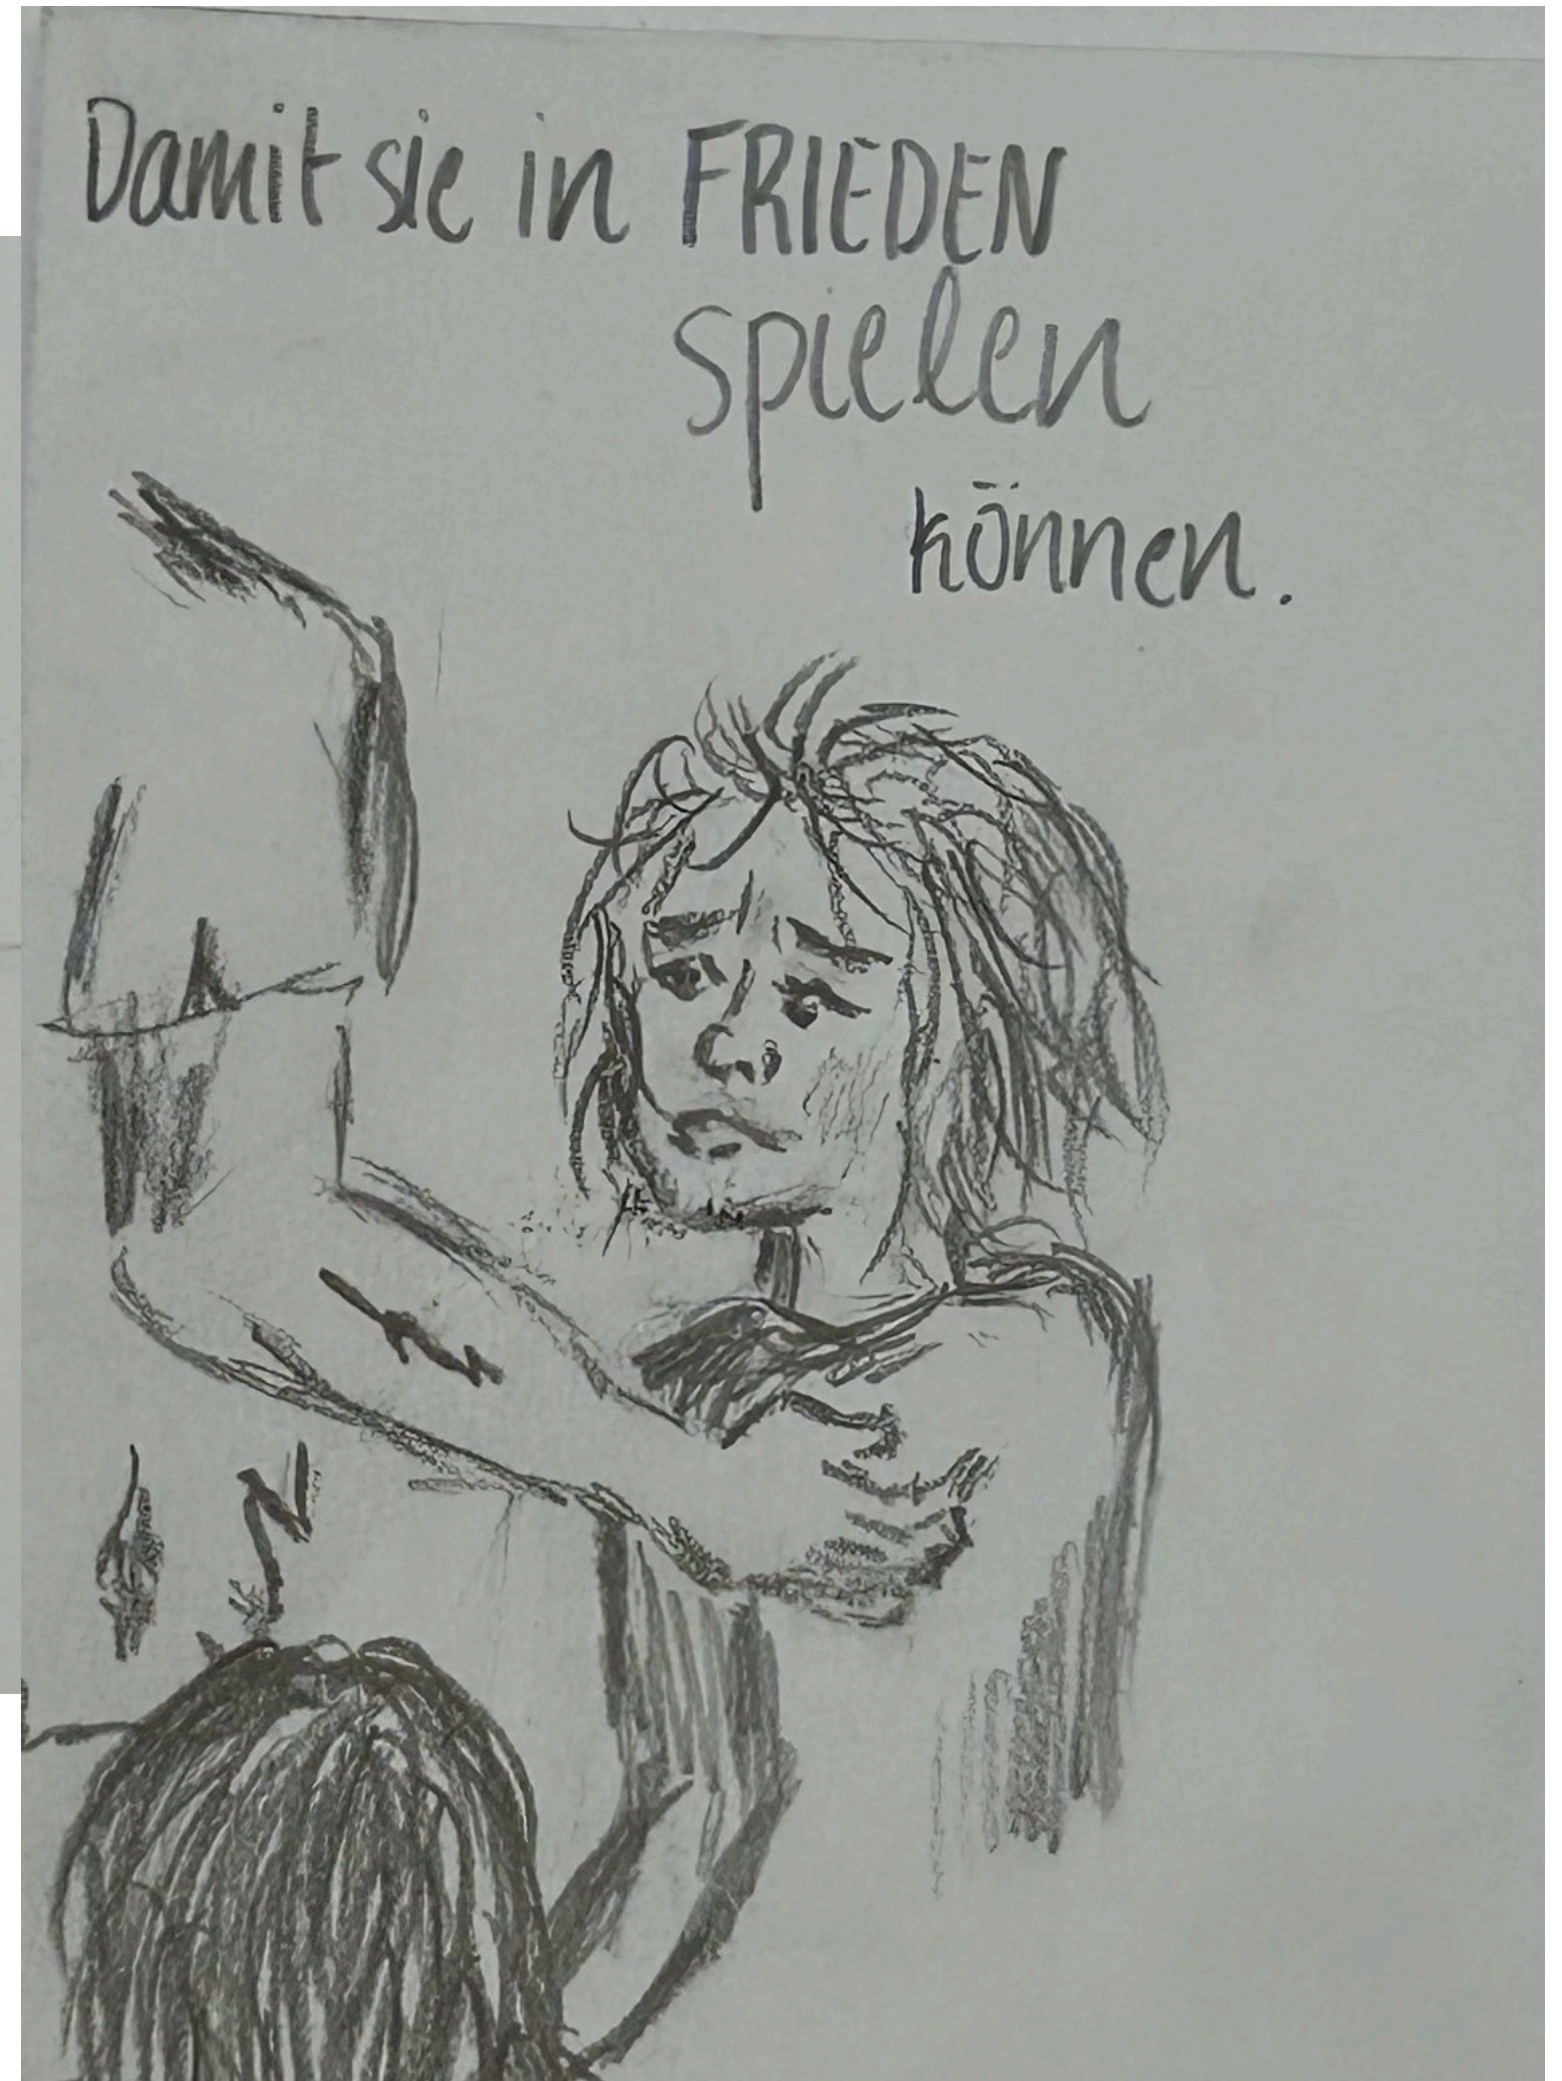 Damit sie in FRIEDEN
spielen
können.